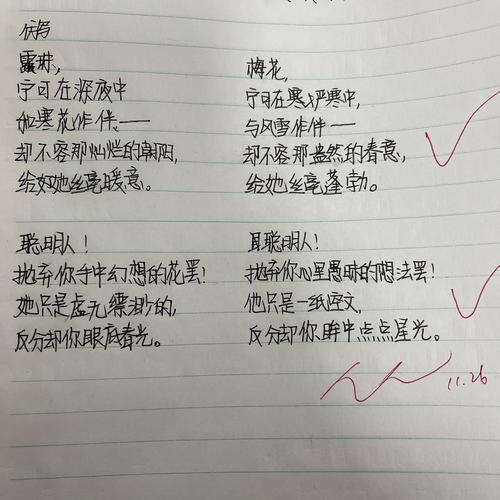 仿写
露珠,
宁可在深夜中
和寒花作伴——
却不容那灿烂的朝阳,
给她丝毫暖意。
梅花,
宁可在严寒中,
与风雪作伴——
却不容那盎然的春意,
给她丝毫蓬勃。
聪明人!
抛弃你手中幻想的花罢!
她只是虚无缥渺的,
反分却你眼底春光。
聪明人!
抛弃你心里愚昧的想法罢!
他只是一纸空文,
反分却你眸中点点星光。
11.26